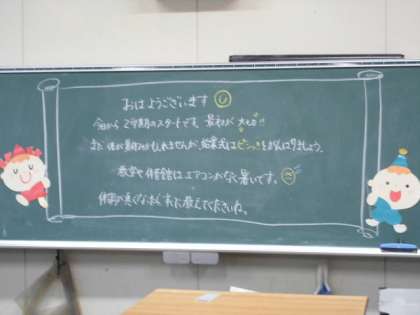 おはようございます
今日から2学期のスタートです。最初が大切!!
まだ体が しれませんが、始業式はビシッと がんばりましょう。
教室や体育館はエアコンがなく暑いです。
体調が悪くなったらすぐに教えてくださいね。